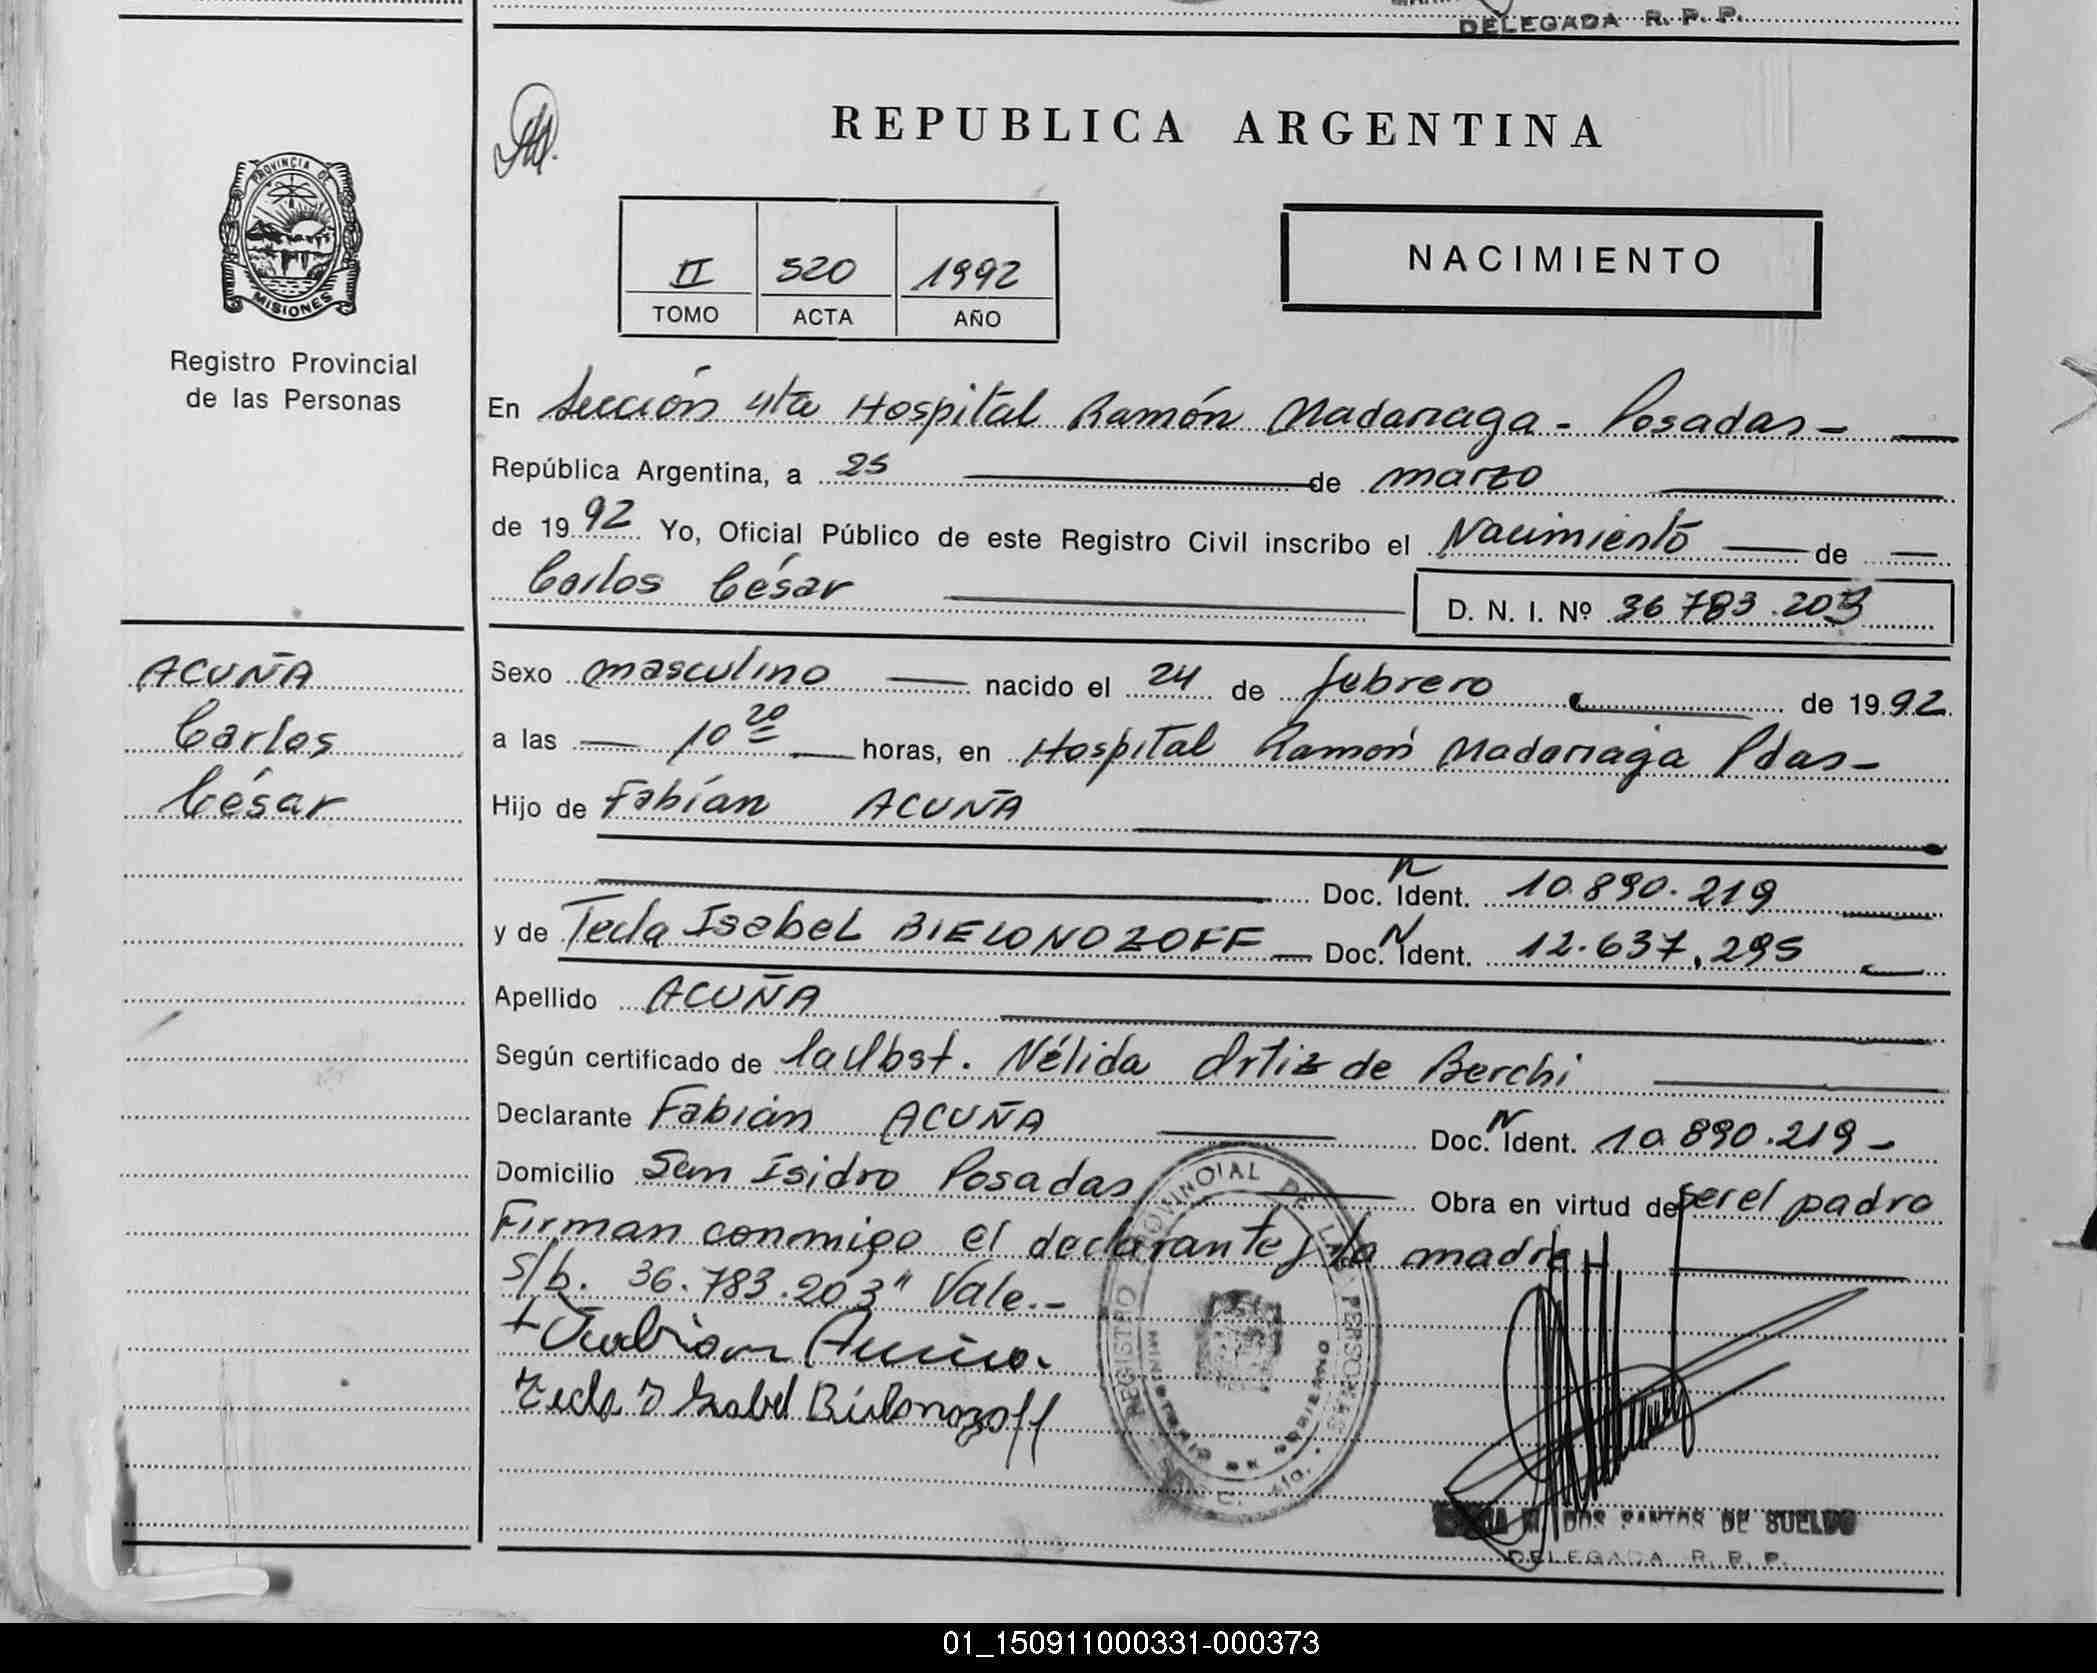 DELEGADA R. P. P.
REPUBLICA ARGENTINA
PROVINCIA DE
MISIONES
Registro Provincial
de las Personas
II 520 1992
TOMO ACTA AÑO
NACIMIENTO
En Sección 4ta Hospital Ramón Madariaga - Posadas -
República Argentina, a 25 de marzo
de 1992 Yo, Oficial Público de este Registro Civil inscribo el Nacimiento de
Carlos César D. N. I. Nº 36 783.203
ACUÑA
Carlos
César
Sexo masculino nacido el 24 de febrero de 1992
a las 10 20 horas, en Hospital Ramón Madariaga Pdas -
Hijo de Fabián ACUÑA
Doc. N Ident. 10.890.219
y de Tecla Isabel BIELONOZOFF - Doc. N Ident. 12.637.295
Apellido ACUÑA
Según certificado de la Obst. Nélida Ortiz de Berchi
Declarante Fabián ACUÑA Doc. N Ident. 10.890.219 -
Domicilio San Isidro Posadas Obra en virtud de ser el padre
Firman conmigo el declarante y la madre
S/b. 36.783.203" Vale.-
+ Fabian Acuña.
Tecla Isabel Bielonozoff
REGISTRO PROVINCIAL DE LAS PERSONAS
MINISTERIO DE GOBIERNO
DOS SANTOS DE SUELDO
DELEGADA R. P. P.
01_150911000331-000373